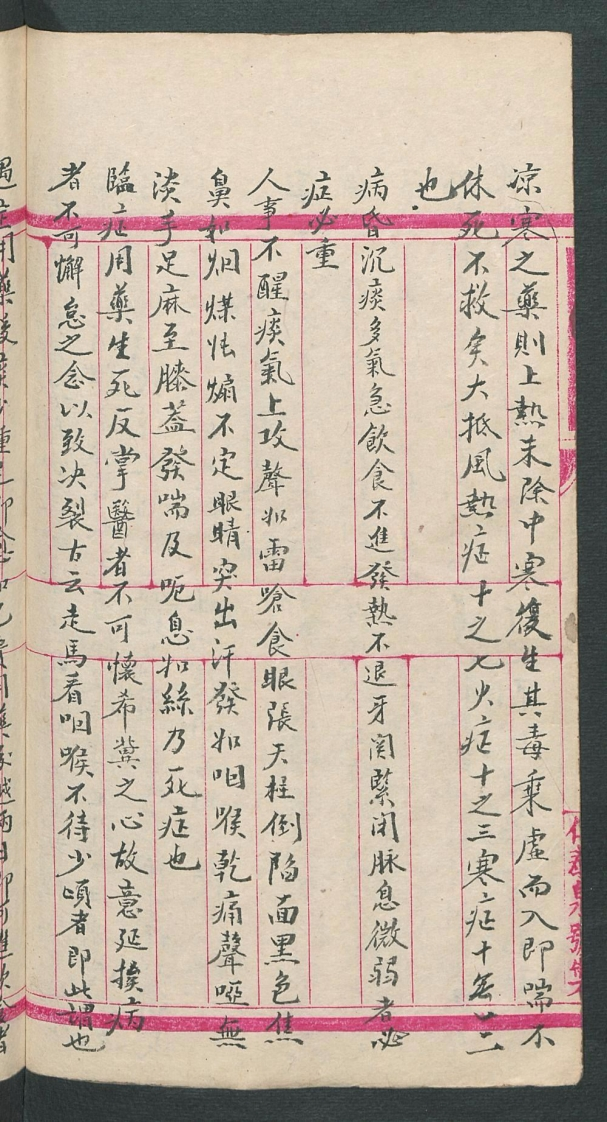 凉寒之藥則上熱未除中寒復生其毒乘虛而入即喘不
休死不救矣大抵風熱症十之七火症十之三寒症十無一二
也
病昏沉痰多氣急飲食不進發熱不退牙関緊闭脉息微弱者必
症必重
人事不醒痰氣上攻聲如雷嗆食眼張天柱倒陷面黑色焦
鼻如烟煤怯煽不定眼睛突出汗發如咽喉乾痛聲啞無
淡手足麻至膝蓋發喘及呃息如絲乃死症也
臨症用藥生死反掌醫者不可懷希冀之心故意延挨病
者不可懈怠之念以致决裂古云走馬看咽喉不待少頃者即此謂也